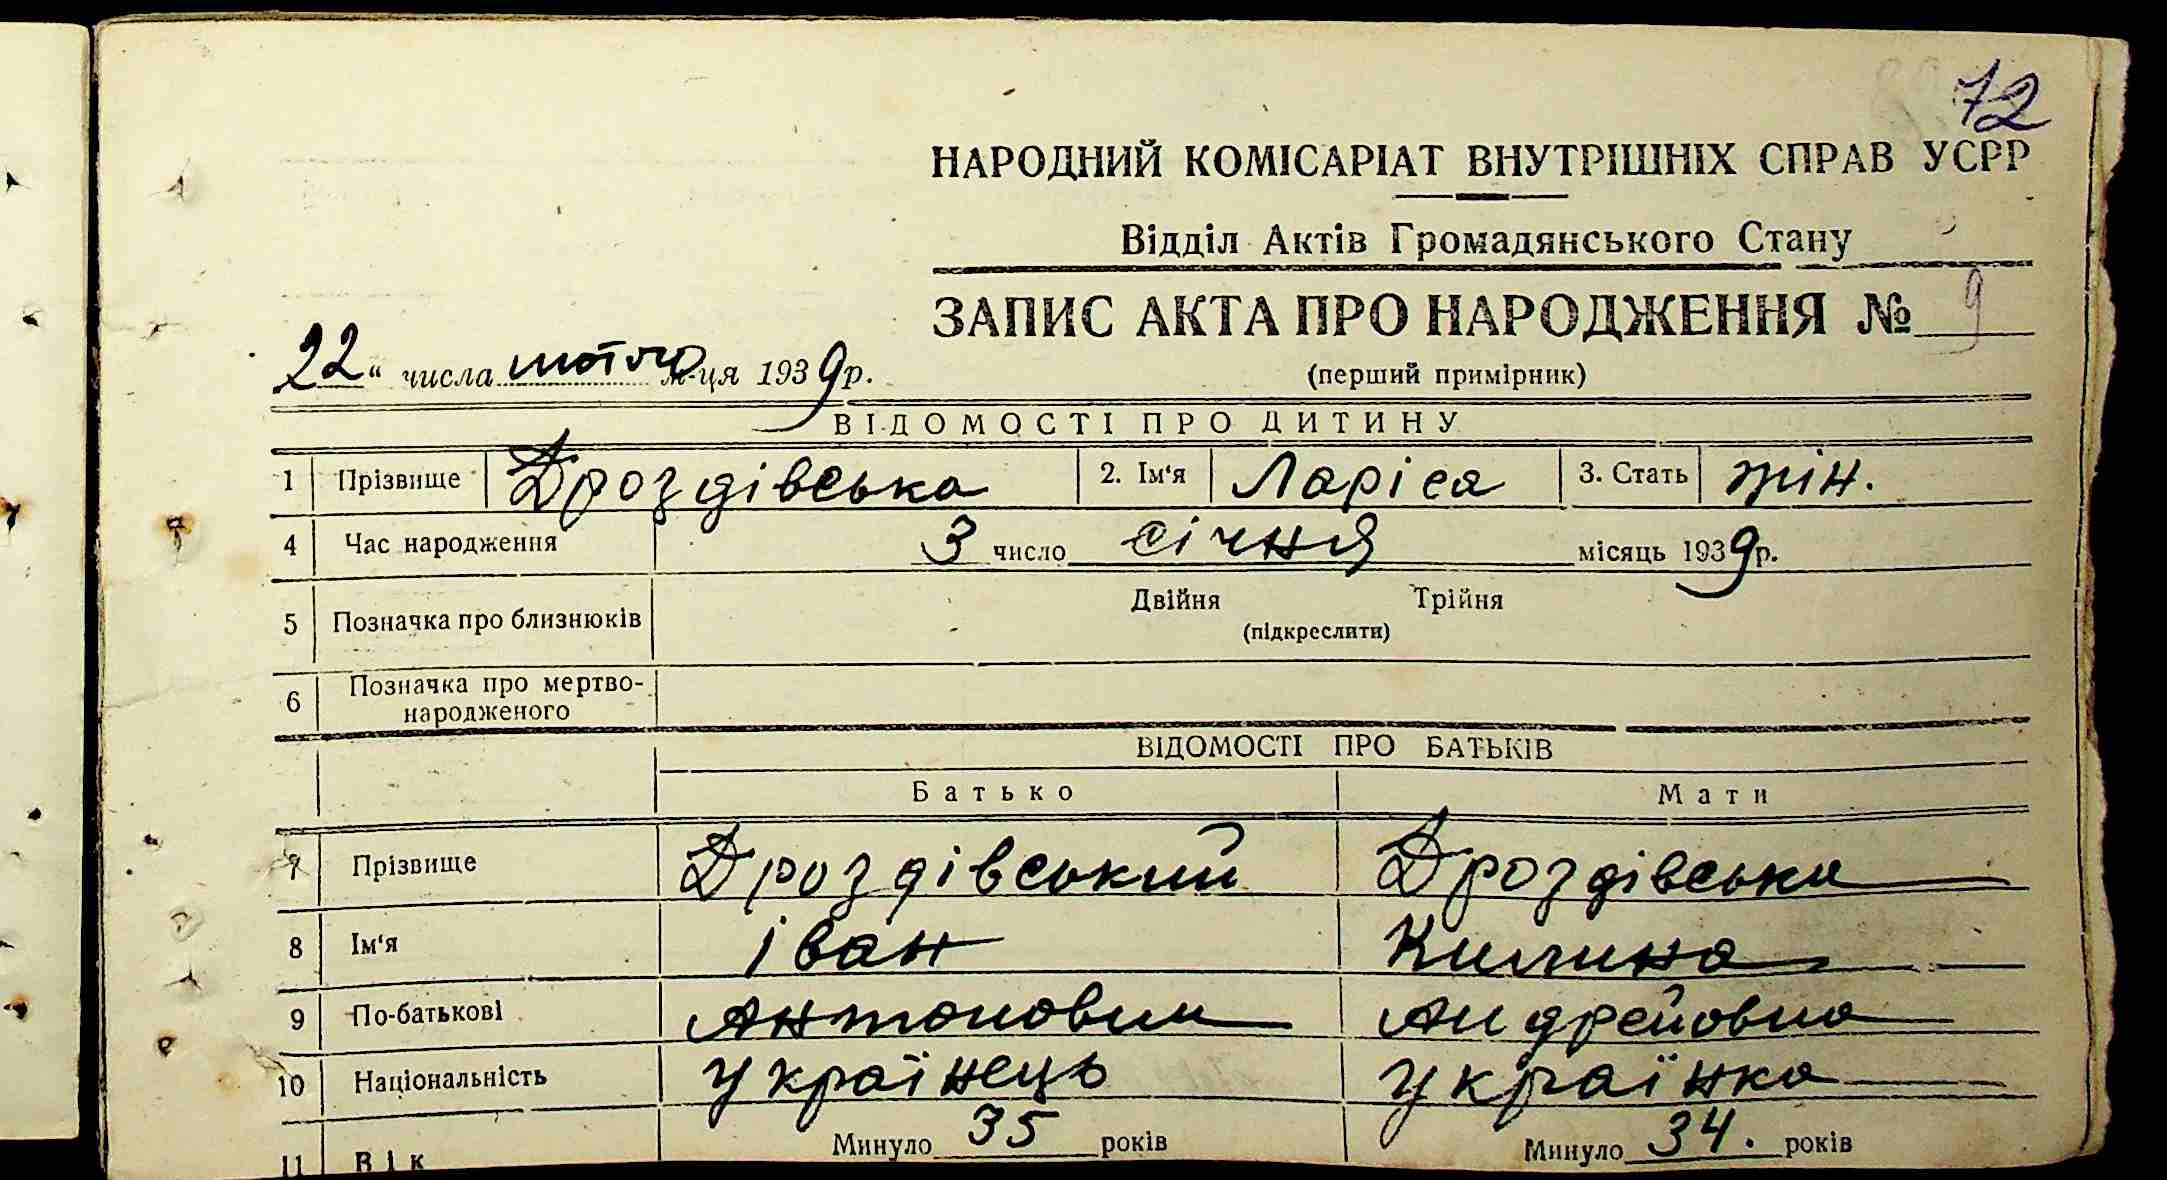 72
НАРОДНИЙ КОМІСАРІАТ ВНУТРІШНІХ СПРАВ УСРР
Відділ Актів Громадянського Стану
ЗАПИС АКТА ПРО НАРОДЖЕННЯ № 9
22 " числа лютого м-ця 1939 р.
(перший примірник)
ВІДОМОСТІ ПРО ДИТИНУ
1 Прізвище Дроздівська 2. Ім'я Ларіса 3. Стать жін.
4 Час народження 3 число січня місяць 1939 р.
5 Позначка про близнюків Двійня Трійня
(підкреслити)
6 Позначка про мертво-
народженого
ВІДОМОСТІ ПРО БАТЬКІВ
Батько Мати
7 Прізвище Дроздівський Дроздівська
8 Ім'я Іван Килина
9 По-батькові Антонович Андрейовна
10 Національність Українець Українка
11 Вік Минуло 35 років Минуло 34. років